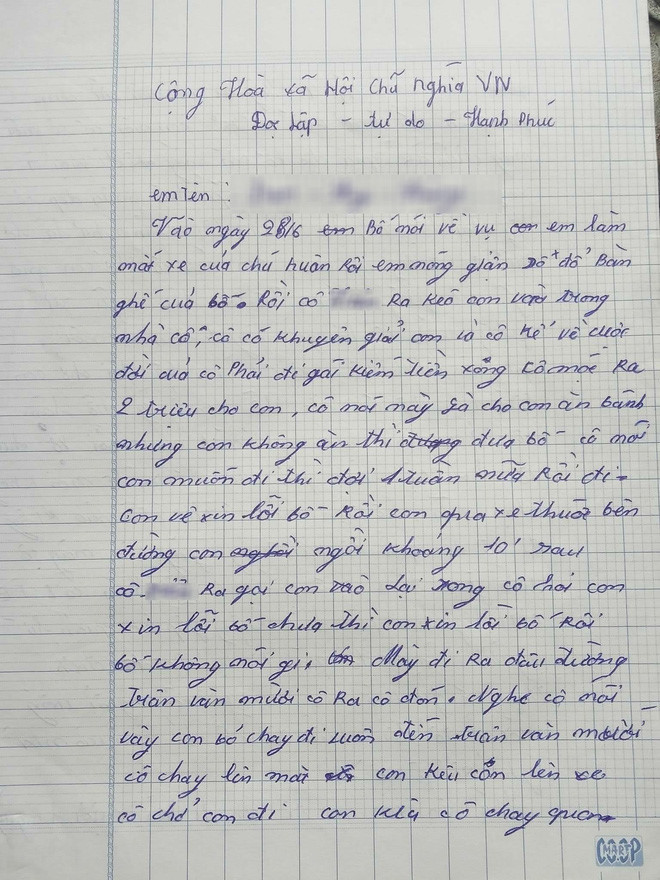 Cộng Hoà xã Hội chủ nghĩa VN
Độc lập - tự do - Hạnh Phúc
em tên :
Vào ngày 28/6 em Bố nói về vụ con em làm
mất xe của chú huân Rồi em nóng giận Dô đổ Bàn
ghế của bố. Rồi cô Ra kéo con vào trong
nhà cô, cô có khuyên giải con và cô kể về cuộc
đời của cô Phải đi gái kiếm tiền xong cô móc Ra
2 triệu cho con, cô nói này là cho con ăn bánh
nhưng con không ăn thì đưa bố cô nói
con muốn đi thì đợi 1 tuần nữa Rồi đi
con về xin lỗi bố Rồi con qua xe thuốc bên
đường con ngồi khoảng 10' sau
cô Ra gọi con vào lại xong cô hỏi con
xin lỗi bố chưa thì con xin lỗi bố Rồi
bố không nói gì, Mày đi Ra đầu đường
Trần văn mười cô Ra cô đón. Nghe cô nói
vậy con bỏ chạy đi luôn đến trần văn mười
cô chạy lên mà con kêu con lên xe
cô chở con đi con kêu cô chạy qua
CO.OP
MART